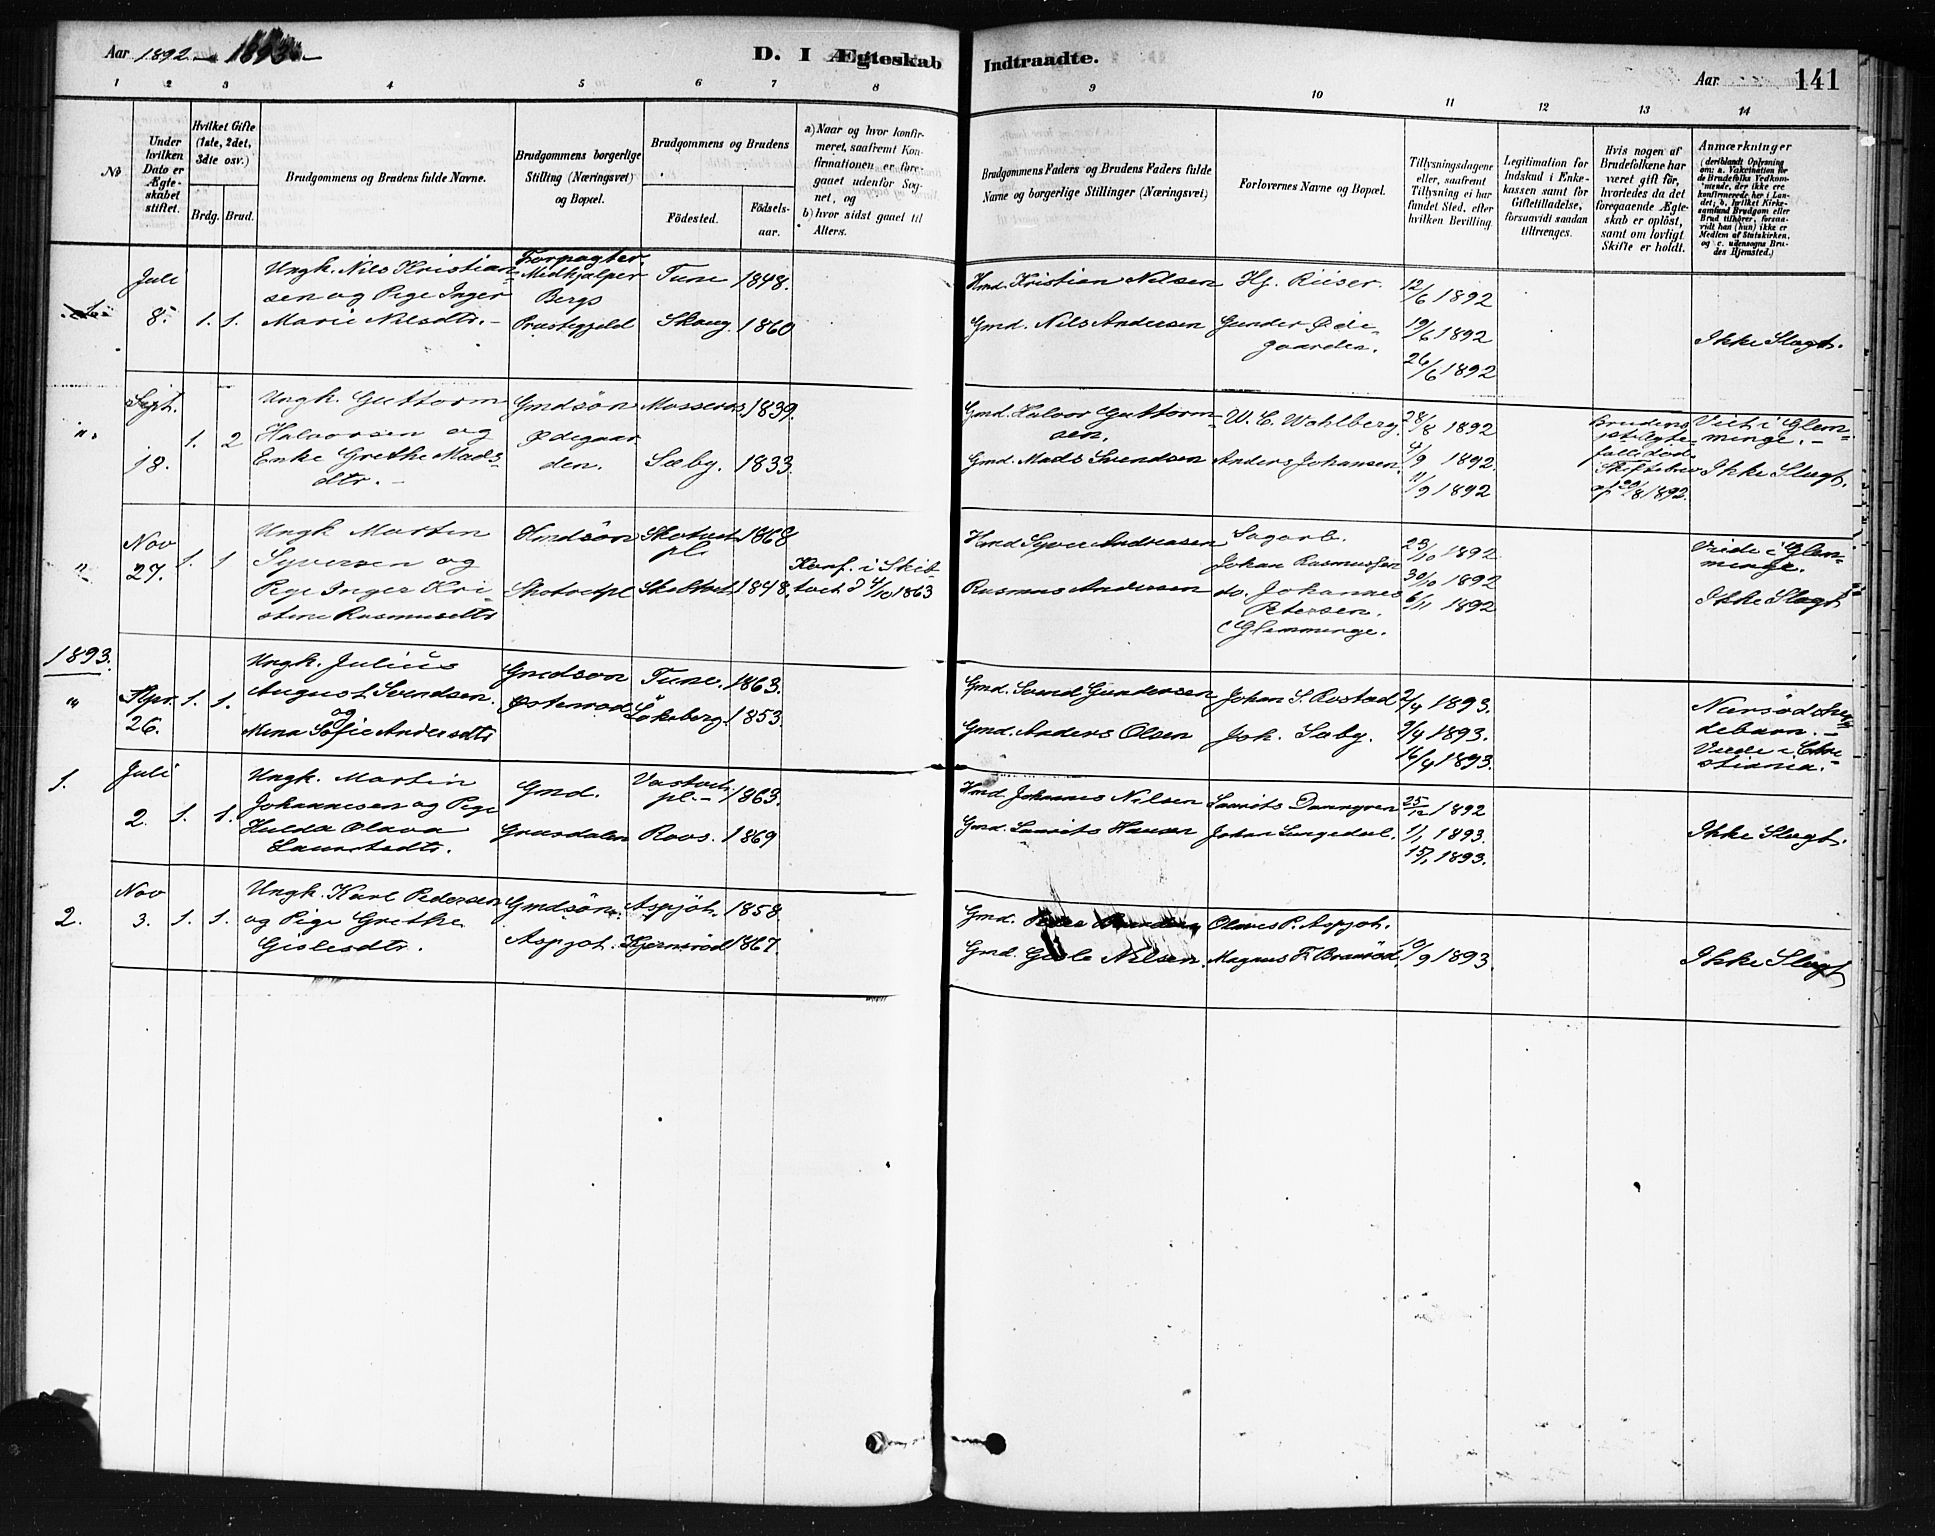 Aar 1892 - 1893 -
D. I Ægteskab Indtraadte.
Aar
141
1 2 3 4 5 6 7 8 9 10 11 12 13 14
No
Under hvilken Dato er Ægteskabet stiftet.
Hvilket Gifte (1ste, 2det, 3dte osv.)
Brdg. Brud.
Brudgommens og Brudens fulde Navne.
Brudgommens borgerlige Stilling (Næringsvei) og Bopæl.
Brudgommens og Brudens
Födested.
Födsels-aar.
a) Naar og hvor konfirmeret, saafremt Konfirmationen er foregaaet udenfor Sognet, og
b) hvor sidst gaaet til Alters.
Brudgommens Faders og Brudens Faders fulde Navne og borgerlige Stillinger (Næringsvei)
Forlovernes Navne og Bopæl.
Tillysningsdagene eller, saafremt Tillysning ei har fundet Sted, efter hvilken Bevilling.
Legitimation for Indskud i Enkekassen samt for Giftetilladelse, forsaavidt saadan tiltrænges.
Hvis nogen af Brudefolkene har været gift för, hvorledes da det foregaaende Ægteskab er oplöst, samt om lovligt Skifte er holdt.
Anmærkninger
(deriblandt Oplysning om: a. Vakcination for de Brudefolks Vedkommende, der ikke ere konfirmerede her i Landet; b. hvilket Kirkesamfund Brudgom eller Brud tilhörer, forsaavidt han (hun) ikke er Medlem af Statskirken, og c. udensogns Brudes Hjemsted.)
Juli
8.
1. 1.
Ungk. Nils Kristian-
sen og Pige Inger
Marie Nilsdtr. -
Forpagter
Medhjælper
Bergs
Præstegjeld
Tune 1848.
Skaug. 1860
Hmd. Kristian Nilsen
Gmd. Nils Andersen
Hj. Riiser.
Gunder Öde-
gaarden.
12/6 1892
19/6 1892
26/6 1892
Ikke Slægt.
Sept.
"
18.
1. 2
Ungk. Guttorm
Halvorsen og
Enke Grethe Mads-
dtr. -
Gmdsön
Ödegaar
den.
1839.
Sæby. 1833.
Gmd. Halvor Guttorm-
sen.
Gmd. Mads Svendsen
W. C. Wahlberg.
Anders Johansen.
28/8 1892
4/9 1892.
11/9 1892
Brudens
Skiftebrev
af 20/8 1892.
Viet i Glem-
minge. -
Ikke Slægt.
Nov
"
27.
1. 1
Ungk Martin
Syversen og
Pige Inger Kri-
stine Rasmusdtr
Hmdsön
1868
1848.
Konf. i Skib-
tvet d 4/10 1863
Hmd Syver Andreasen
Rasmus Andersen
Sagarb.
Johan Rasmussen
do. Johannes
Petersen.
Glemminge.
23/10 1892
30/10 1892
6/11 1892
Viede i Glem-
minge.
Ikke Slægt
1893.
"
Apr.
26.
1. 1.
Ungk. Julius
August Svendsen.
og
Mina Sofie Andersdtr
Gmdsön
Österöd
Tune. 1863.
1853.
Gmd. Svend Gundersen
Gmd. Anders Olsen
Johan S. Rostad
Joh. Sæby.
2/4 1893.
9/4 1893.
16/4 1893.
Næstsödsken-
debarn. -
Viede i Chri-
stiania.
1.
Juli
2.
1. 1.
Ungk. Martin
Johannesen og Pige
Hulda Olava
Lauritsdtr.
Gmd.
Græsdalen
pl. - 1863.
Roos. 1869
Hmd. Johannes Nilsen
Gmd. Laurits Hansen
Laurits
Johan
25/12 1892
1/1 1893.
15/1 1893.
Ikke Slægt.
2.
Nov
3.
1. 1.
Ungk. Karl Pedersen
og Pige Grethe
Gislesdtr.
Gmdsön.
Aspjöt.
Aspjöt. 1858.
1867.
Gmd.
Gmd. Gisle Nilsen.
Olaves P. Aspjöt.
Magnus F. Braaröd.
10/9 1893.
Ikke Slægt